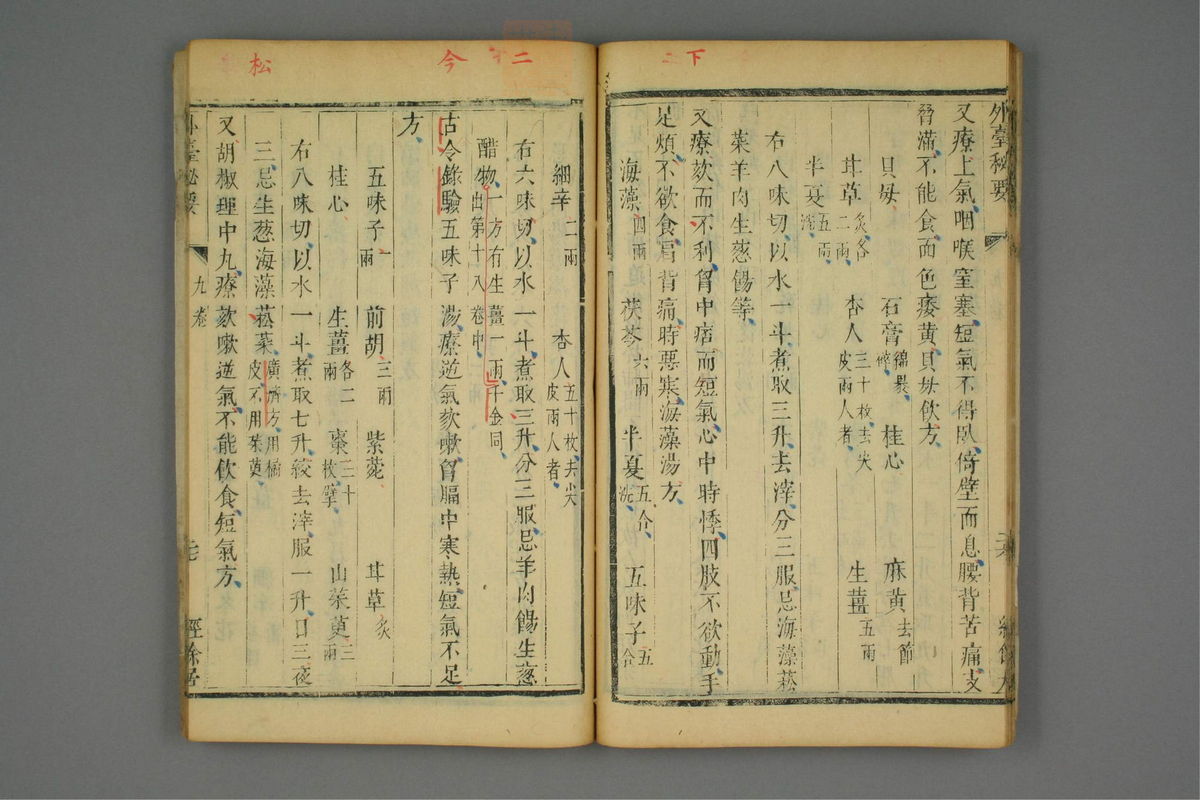 下
外臺秘要
又療上氣咽喉窒塞短氣不得臥倚壁而息腰背苦痛支
脅滿不能食面色痿黃貝母飲方
貝母 石膏綿裹碎 桂心 麻黃去節
甘草炙各二兩 杏人三十枚去尖皮兩人者 生薑五兩
半夏五兩洗
右八味切以水一斗煮取三升去滓分三服忌海藻菘
菜羊肉生葱餳等
又療欬而不利胷中痞而短氣心中時悸四肢不欲動手
足煩不欲食肩背痛時惡寒海藻湯方
海藻四兩 茯苓六兩 半夏五合洗 五味子五合
二 今 松
細辛二兩 杏人五十枚去尖皮兩人者
右六味切以水一斗煮取三升分三服忌羊肉餳生葱
醋物一方有生薑一兩千金同出第十八卷中
古今錄驗五味子湯療逆氣欬嗽胷膈中寒熱短氣不足
方
五味子一兩 前胡三兩 紫菀 甘草炙
桂心 生薑各二兩 棗三十枚擘 山茱萸三兩
右八味切以水一斗煮取七升絞去滓服一升日三夜
三忌生葱海藻菘菜廣濟方用橘皮不用茱萸
又胡椒理中丸療欬嗽逆氣不能飲食短氣方
外臺秘要 九卷 經餘居